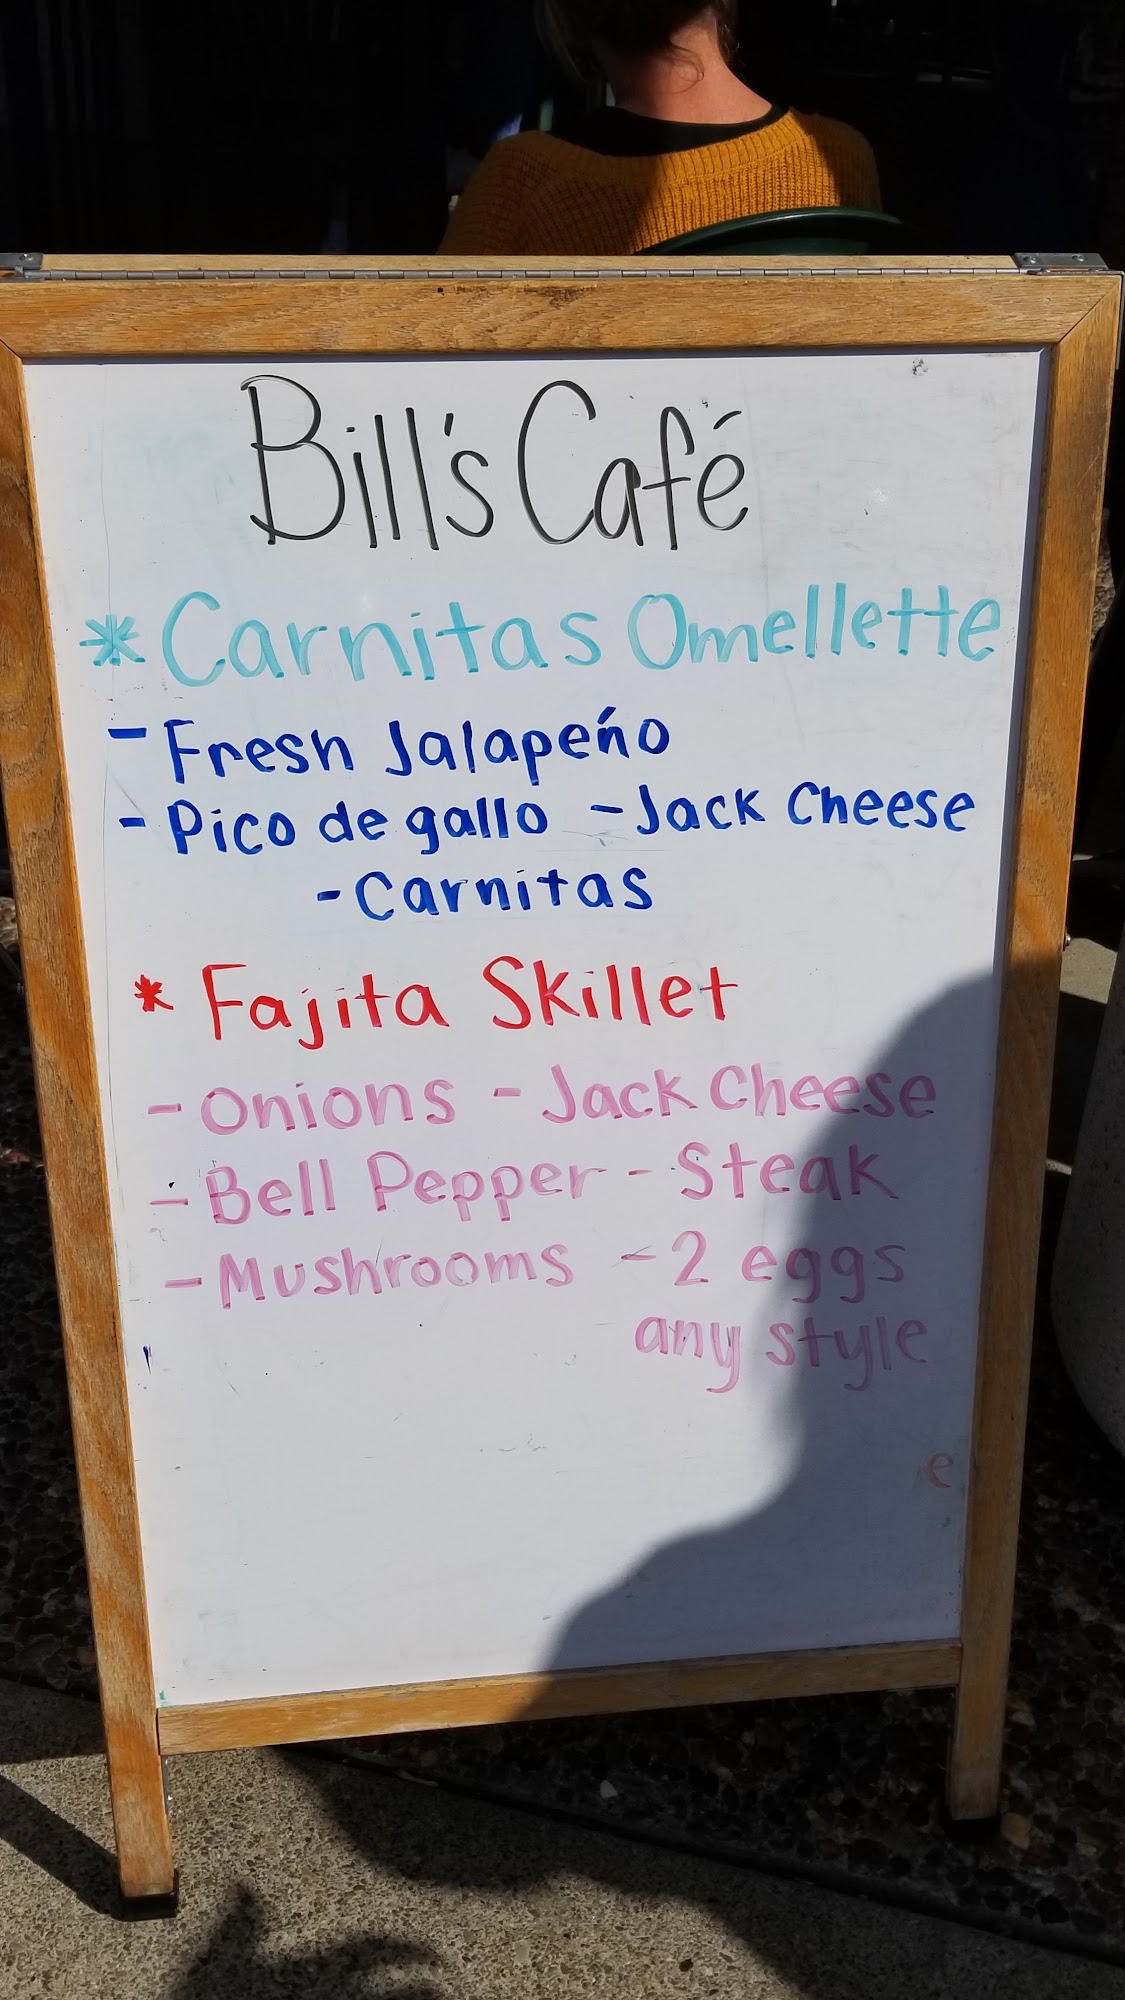 Bill's Café
* Carnitas Omellette
- Fresh Jalapeño
- Pico de gallo - Jack Cheese
- Carnitas
* Fajita Skillet
- Onions - Jack Cheese
- Bell Pepper - Steak
- Mushrooms - 2 eggs
any style
e